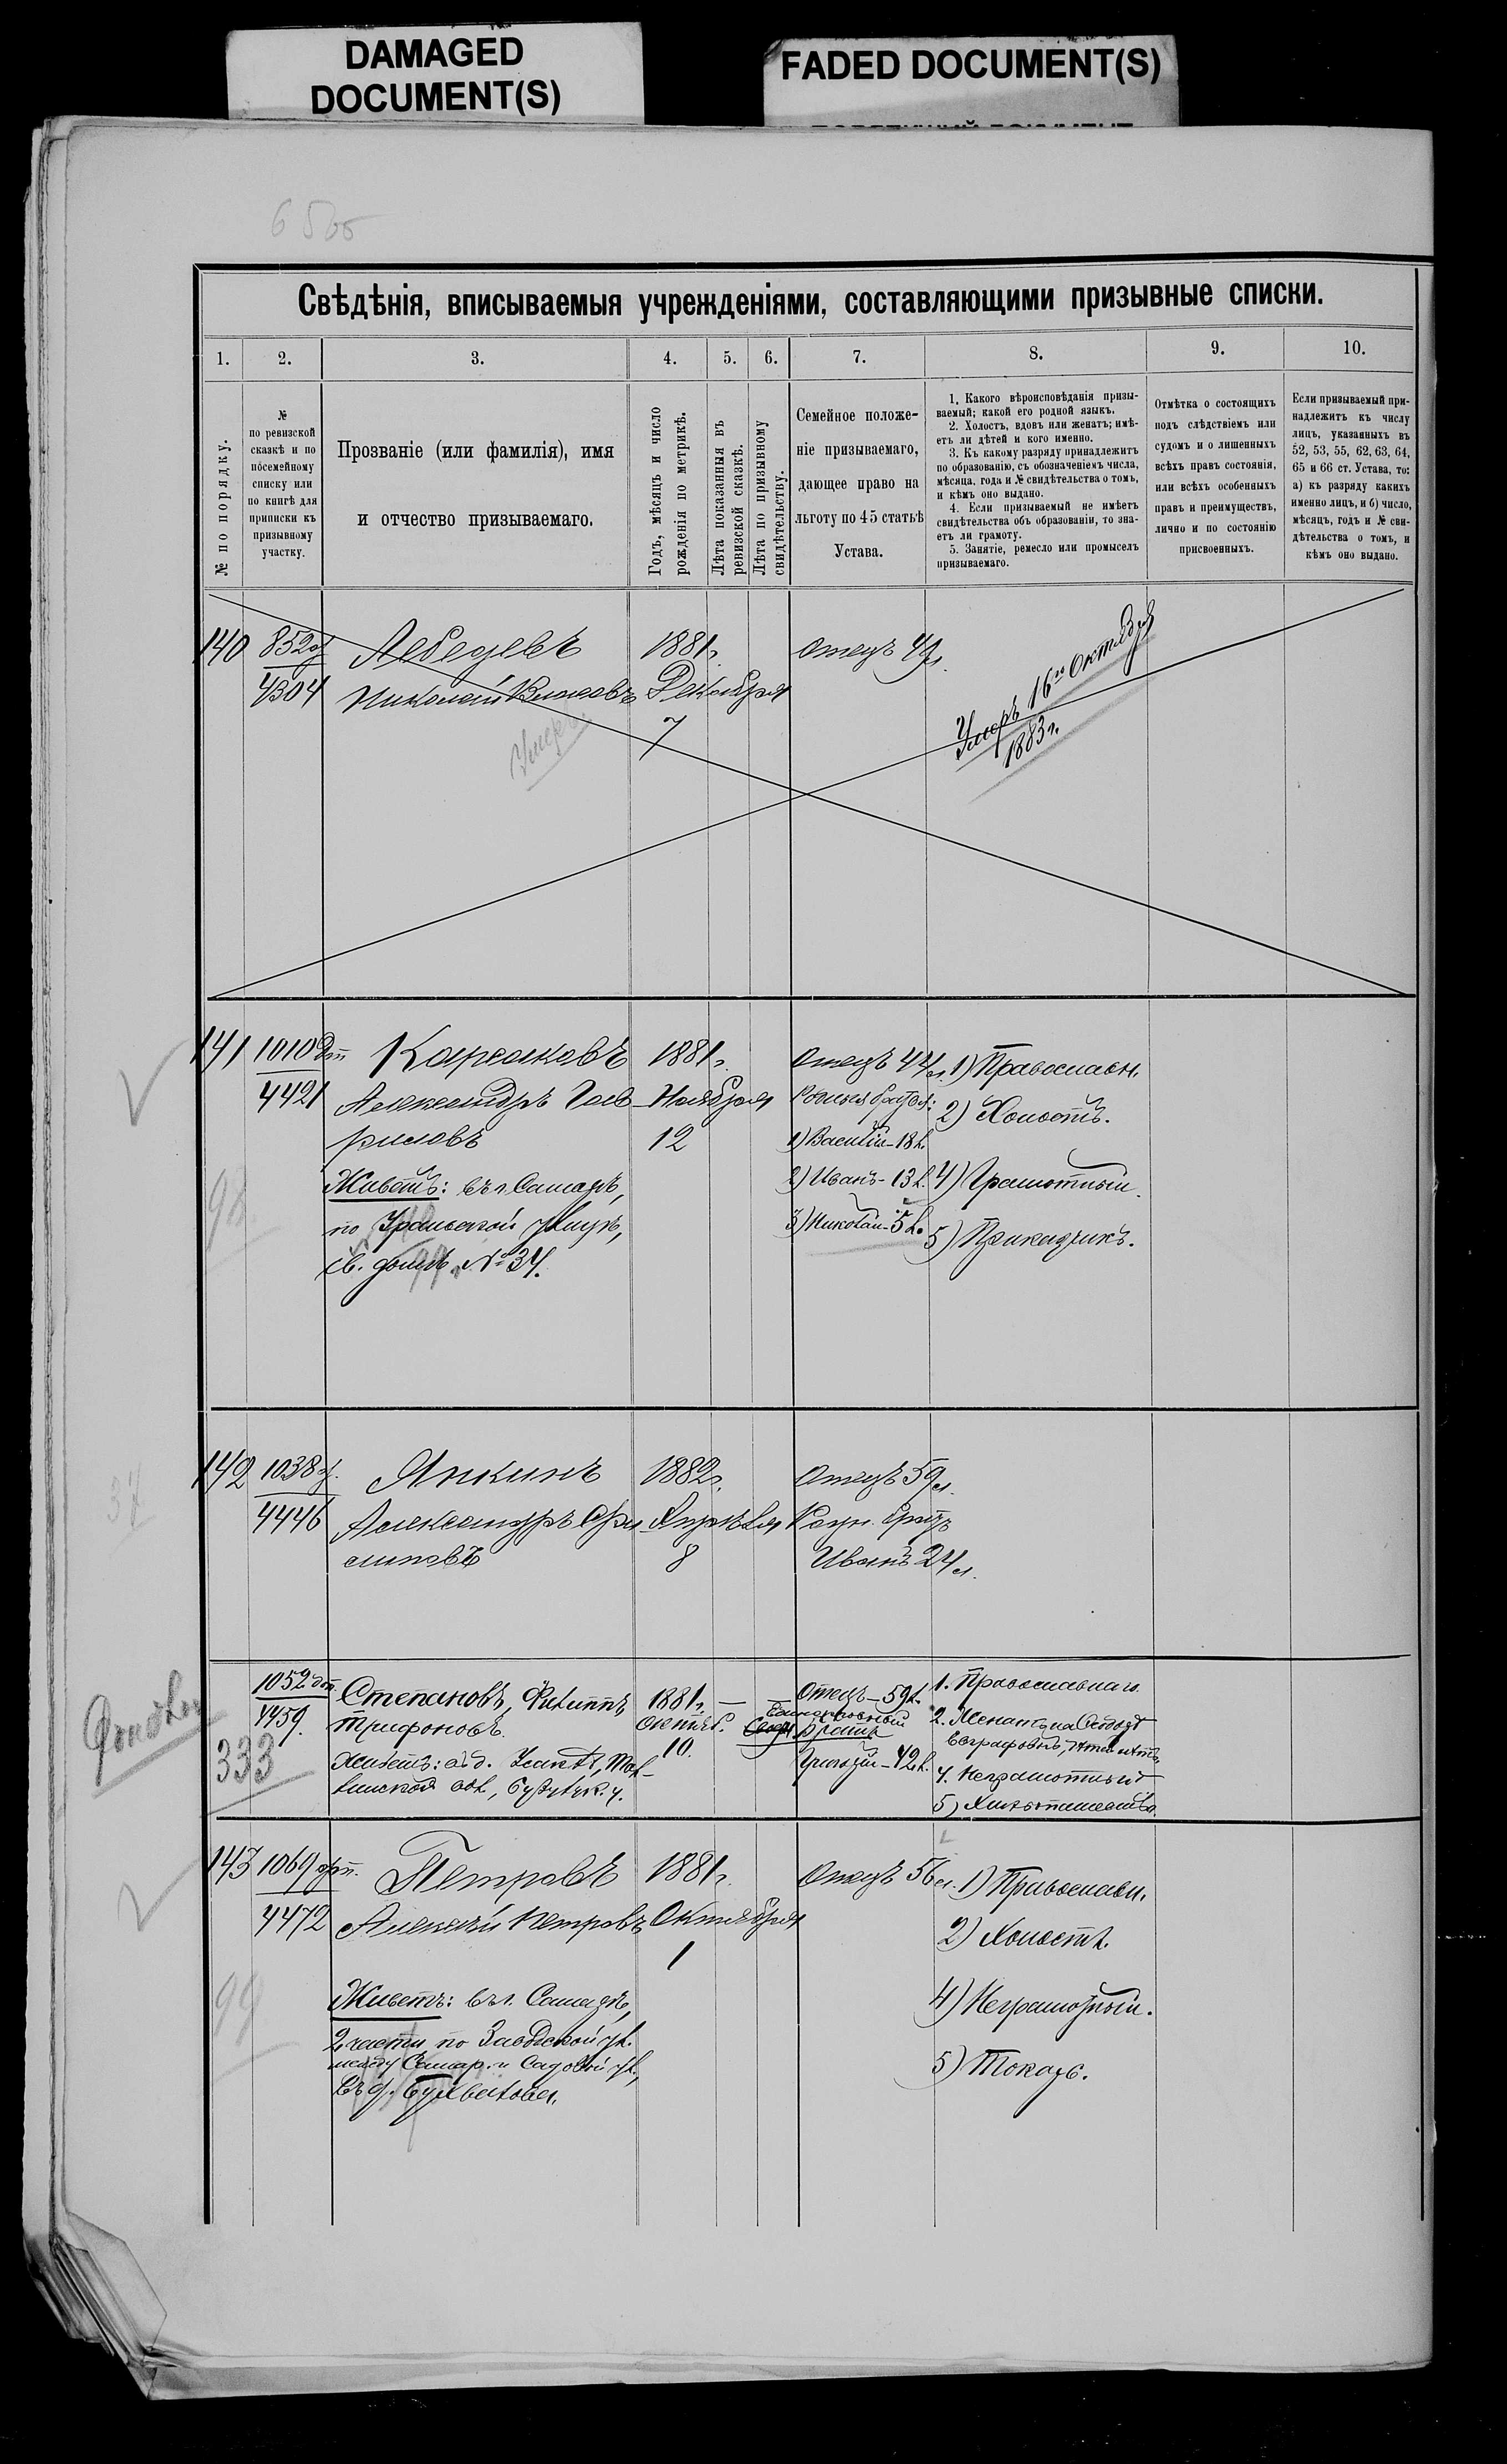 DAMAGED
DOCUMENT(S)
FADED DOCUMENT(S)
Свѣдѣнія, вписываемыя учрежденіями, составляющими призывные списки.
1.
2.
3.
4.
5.
6.
7.
8.
9.
10.
№ по порядку.
№
по ревизской
сказкѣ и по
посемейному
списку или
по книгѣ для
приписки къ
призывному
участку.
Прозваніе (или фамилія), имя
и отчество призываемаго.
Годъ, мѣсяцъ и число
рожденія по метрикѣ.
Лѣта показанныя въ
ревизской сказкѣ.
Лѣта по призывному
свидѣтельству.
Семейное положе-
ніе призываемаго,
дающее право на
льготу по 45 статьѣ
Устава.
1. Какого вѣроисповѣданія призы-
ваемый; какой его родной языкъ.
2. Холостъ, вдовъ или женатъ; имѣ-
етъ ли дѣтей и кого именно.
3. Къ какому разряду принадлежитъ
по образованію, съ обозначеніемъ числа,
мѣсяца, года и № свидѣтельства о томъ,
и кѣмъ оно выдано.
4. Если призываемый не имѣетъ
свидѣтельства объ образованіи, то зна-
етъ ли грамоту.
5. Занятіе, ремесло или промыселъ
призываемаго.
Отмѣтка о состоящихъ
подъ слѣдствіемъ или
судомъ и о лишенныхъ
всѣхъ правъ состоянія,
или всѣхъ особенныхъ
правъ и преимуществъ,
лично и по состоянію
присвоенныхъ.
Если призываемый при-
надлежитъ къ числу
лицъ, указанныхъ въ
52, 53, 55, 62, 63, 64,
65 и 66 ст. Устава, то:
а) къ разряду какихъ
именно лицъ, и б) число,
мѣсяцъ, годъ и № сви-
дѣтельства о томъ, и
кѣмъ оно выдано.
140
852
4304
Лебедевъ
Николай Власовъ
Умеръ
1881г.
Декабря
7
Отецъ 49л.
Умеръ 16го Октября
1883г.
141
1010
4421
Александръ Гав-
риловъ
Живетъ: въ г. Самарѣ,
по Уральской улицѣ,
св. домъ № 34.
98
1881г.
Ноября
12
Отецъ 44л.
Родные братья:
1) Василій-18л.
2) Иванъ-13л.
3) Николай-5л.
1) Православн.
2) Холостъ.
4) Грамотный.
5) Прикащикъ.
37
142
1038
4446
Аникинъ
Александръ
1882г.
8
Отецъ 59л.
Родн. братъ
Иванъ 24л.
333
1052
4459.
Степановъ, Филиппъ
Трифоновъ.
1881г.
Октяб.
10.
Отецъ-59л.
Единокровный
братъ
Григорій-12л.
1. Православнаго
4. Неграмотный
5) Хлѣбопашество.
143
1069
4472
Петровъ
Алексѣй Петровъ
Живетъ: въ г. Самарѣ,
2 части по Заводской ул.
между Самар. и Садовой ул.,
99
1881г.
Октября
1
Отецъ 56л.
1) Православн.
2) Холостъ.
4) Неграмотный.
5) Токарь.